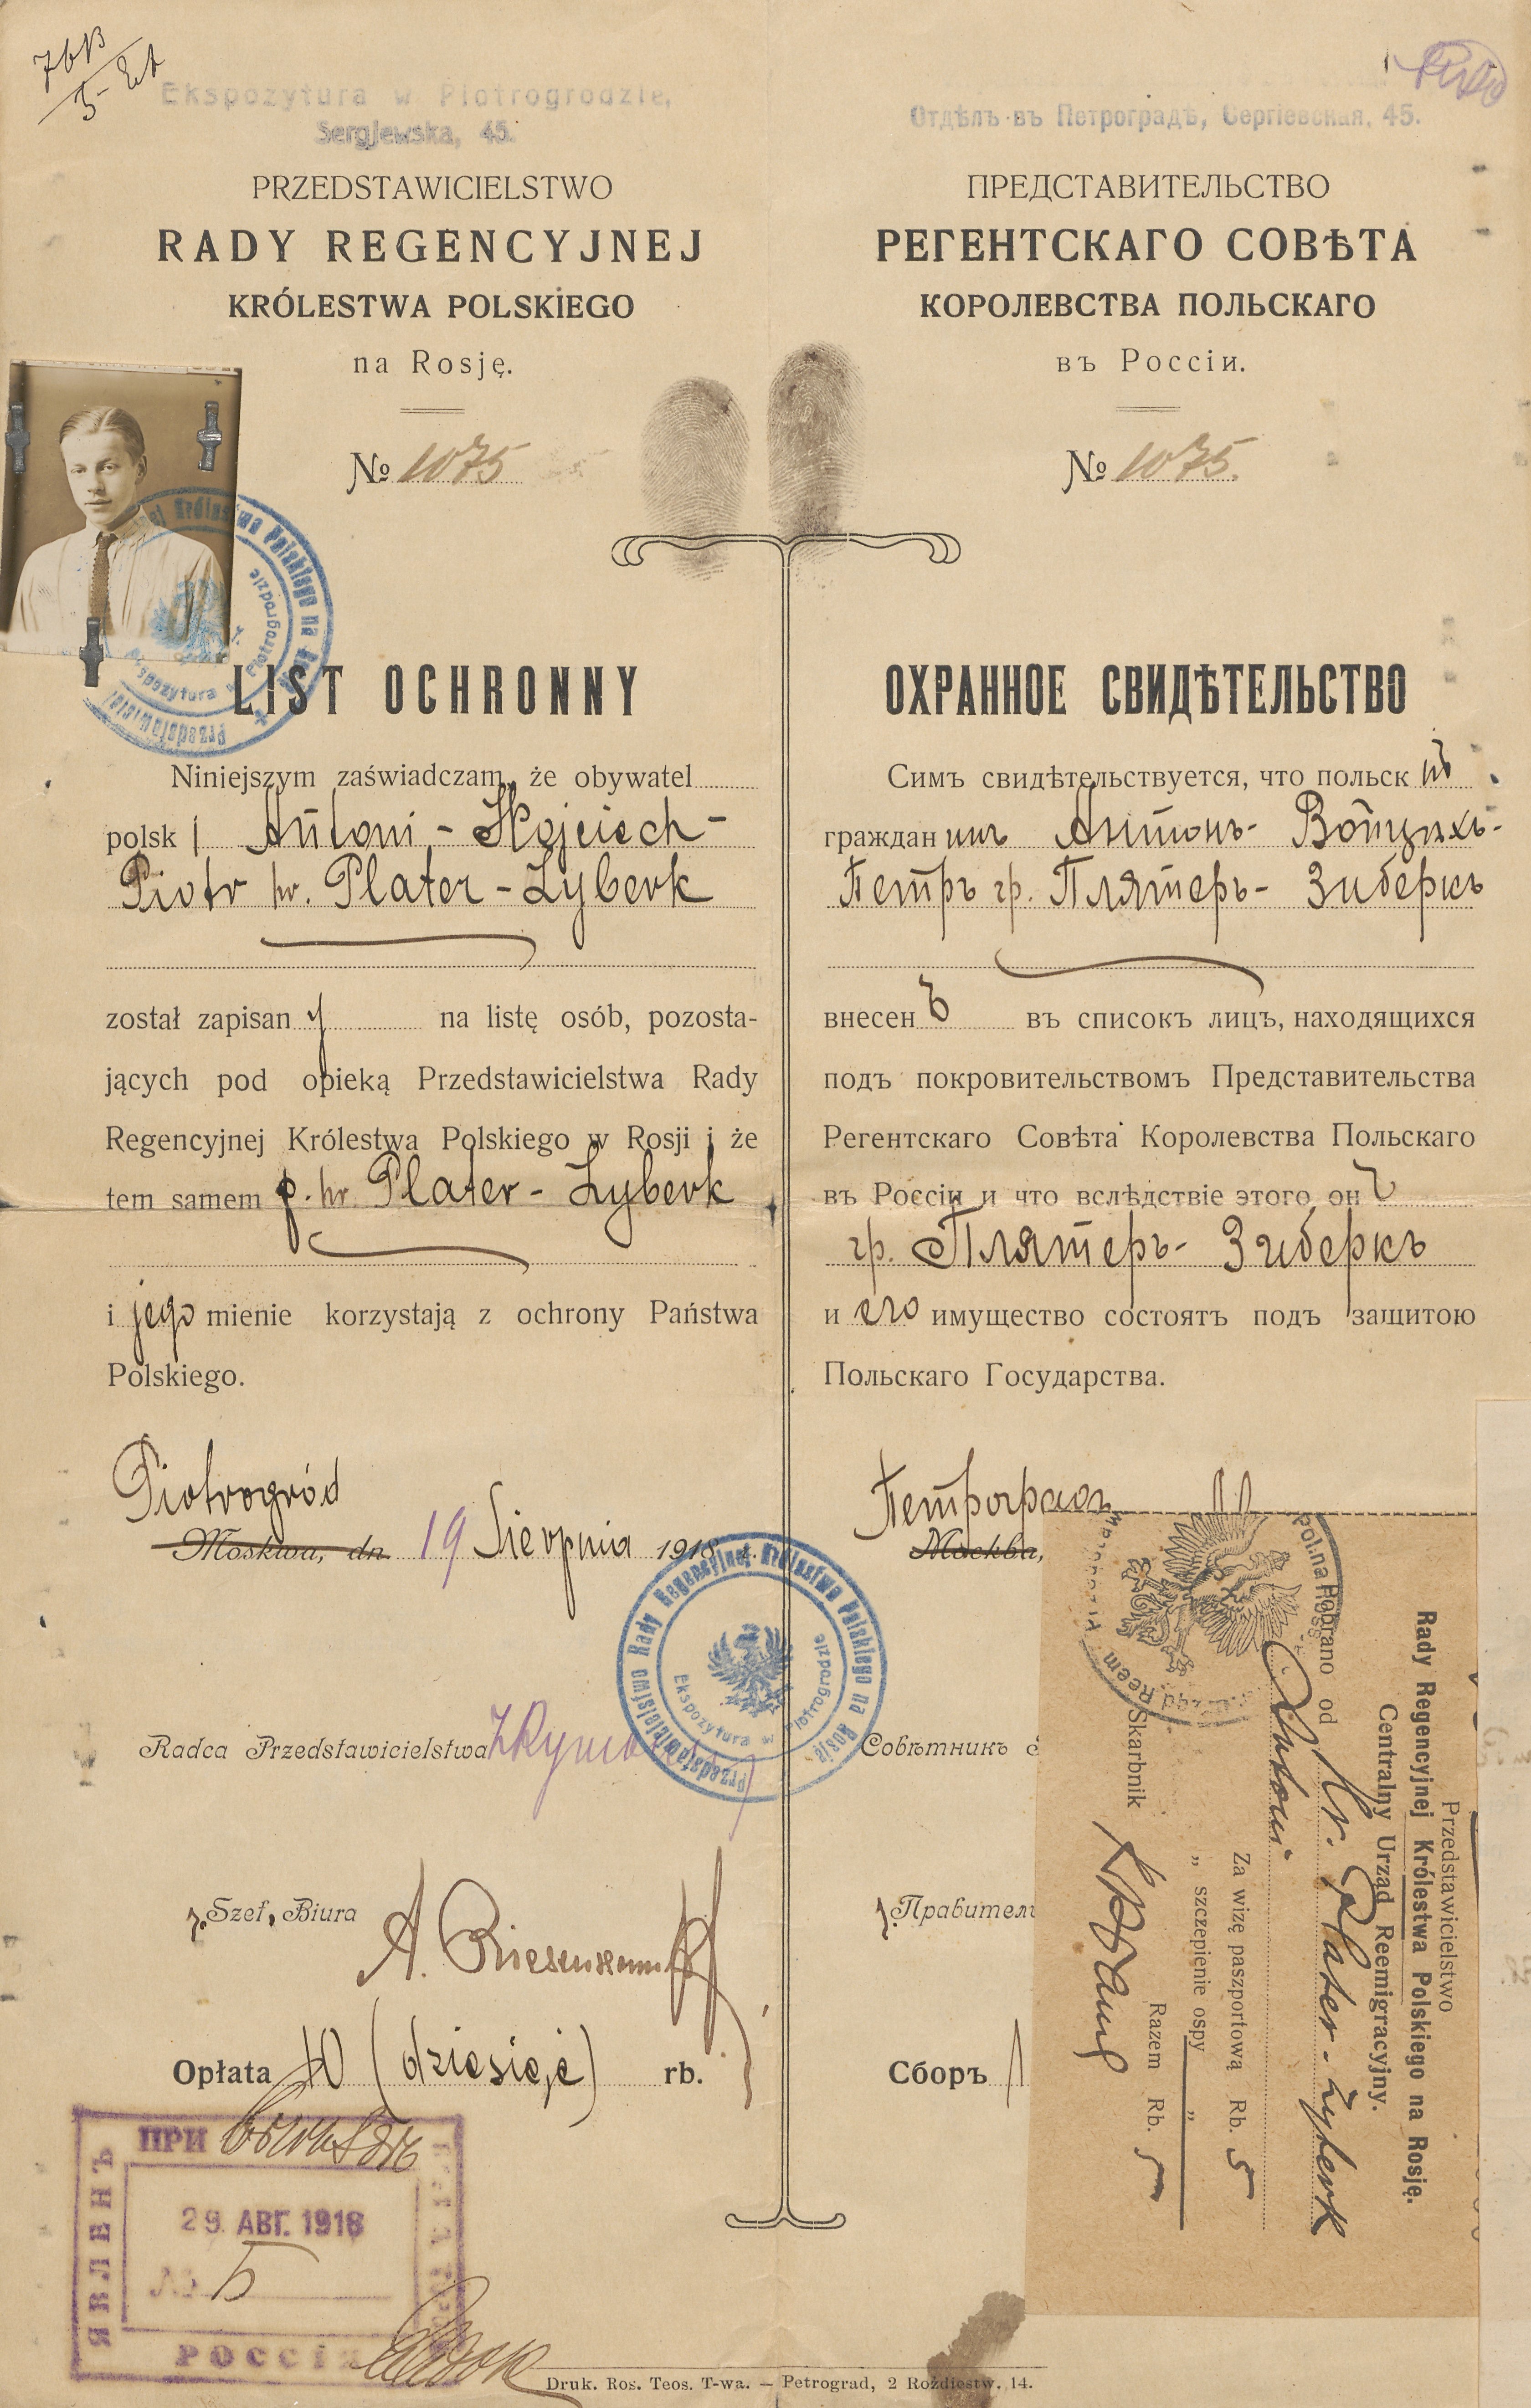 Ekspozytura w Piotrogrodzie,
Sergjewska, 45.
PRZEDSTAWICIELSTWO
RADY REGENCYJNEJ
KRÓLESTWA POLSKIEGO
na Rosję.
№ 1075
LIST OCHRONNY
Niniejszym zaświadczam, że obywatel
polsk i Antoni - Wojciech -
Piotr hr. Plater - Zyberk
został zapisan y na listę osób, pozosta-
jących pod opieką Przedstawicielstwa Rady
Regencyjnej Królestwa Polskiego w Rosji i że
tem samem p. hr. Plater - Zyberk
i jego mienie korzystają z ochrony Państwa
Polskiego.
Piotrogród
Moskwa, dn. 19 Sierpnia 1918 r.
Przedstawicielstwo Rady Regencyjnej Królestwa Polskiego na Rosję.
Ekspozytura w Piotrogrodzie
Radca Przedstawicielstwa
z. Szef. Biura
Opłata 10 (dziesięć) rb.
ЯВЛЕНЪ
ПРИ
29 АВГ. 1918
№ 5
РОССІЯ
Отдѣлъ въ Петроградѣ, Сергіевская, 45.
ПРЕДСТАВИТЕЛЬСТВО
РЕГЕНТСКАГО СОВѢТА
КОРОЛЕВСТВА ПОЛЬСКАГО
въ Россіи.
№ 1075.
ОХРАННОЕ СВИДѢТЕЛЬСТВО
Симъ свидѣтельствуется, что польск ій
граждан инъ Антонъ- Войцехъ-
Петръ гр. Плятеръ- Зиберкъ
внесен ъ въ списокъ лицъ, находящихся
подъ покровительствомъ Представительства
Регентскаго Совѣта Королевства Польскаго
въ Россіи и что вслѣдствіе этого он ъ
гр. Плятеръ- Зиберкъ
и его имущество состоятъ подъ защитою
Польскаго Государства.
Петроградъ
Москва,
Совѣтникъ
Правител
Сборъ 1
Przedstawicielstwo
Rady Regencyjnej Królestwa Polskiego na Rosję.
Centralny Urząd Reemigracyjny.
Pobrano od hr. Plater - Zyberk
Antoni
Za wizę paszportową Rb. 5
„ szczepienie ospy „
Razem Rb. 5
Skarbnik
Druk. Ros. Teos. T-wa. — Petrograd, 2 Roždiestw. 14.